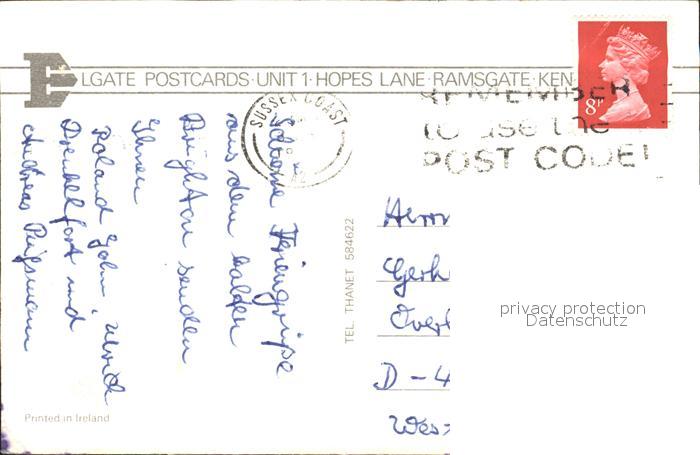 ELGATE POSTCARDS · UNIT 1 · HOPES LANE · RAMSGATE · KEN
8P
SUSSEX COAST
REMEMBER
to use the
POST CODE!
Schöne Feriengrüße
aus dem kalten
Brighton senden
Ihnen
Roland John, Ulrich
und
Andreas
TEL. THANET 584622
Herrn
Gerh
Over
D - 4
Wes
privacy protection
Datenschutz
Printed in Ireland